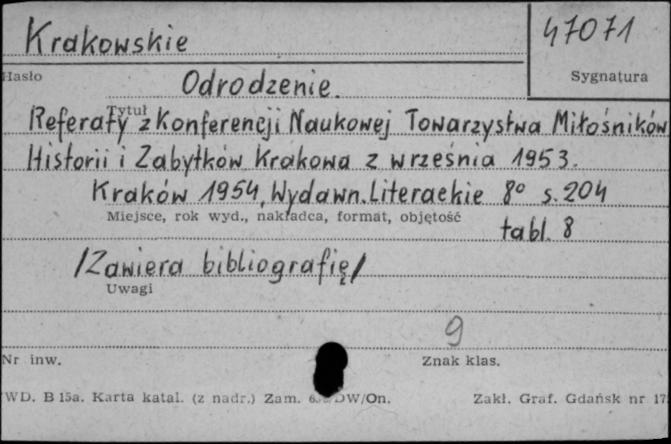 Krakowskie
47071
Hasło
Sygnatura
Odrodzenie.
Tytuł
Referaty z Konferencji Naukowej Towarzystwa Miłośników
Historii i Zabytków Krakowa z września 1953.
Kraków 1954, Wydawn. Literackie 8° s. 204
Miejsce, rok wyd., nakładca, format, objętość
tabl. 8
/Zawiera bibliografię/
Uwagi
9
Nr inw.
Znak klas.
WD. B 15a. Karta katal. (z nadr.) Zam. DW/On.
Zakł. Graf. Gdańsk nr 17